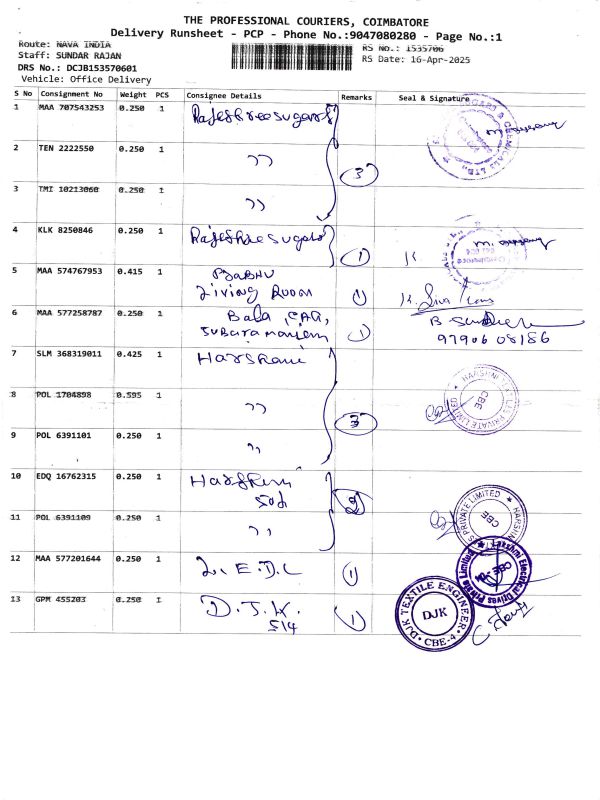 THE PROFESSIONAL COURIERS, COIMBATORE
Delivery Runsheet - PCP - Phone No.:9047080280 - Page No.:1
Route: NAVA INDIA
Staff: SUNDAR RAJAN
DRS No.: DCJB153570601
Vehicle: Office Delivery
RS No.: 1535706
RS Date: 16-Apr-2025
S No Consignment No Weight PCS Consignee Details Remarks Seal & Signature
1 MAA 707543253 0.250 1 Rajeshreesugars
2 TEN 2222550 0.250 1 " 3
3 TMI 10213060 0.250 1 "
4 KLK 8250846 0.250 1 Rajeshree sugars 1
5 MAA 574767953 0.415 1 Prabhu
Living Room 1
6 MAA 577258787 0.250 1 Bala
Subaramaniam 1
97906 08186
7 SLM 368319011 0.425 1 Harshani
8 POL 1704898 0.595 1 " 3
HARSHNI TEXTILES PRIVATE LIMITED CBE
9 POL 6391101 0.250 1 "
10 EDQ 16762315 0.250 1 2
11 POL 6391109 0.250 1 "
PRIVATE LIMITED HARSHNI CBE
12 MAA 577201644 0.250 1 L.E.D.L 1
Lakshmi Electrical Drives Private Limited
13 GPM 455203 0.250 1 D.J.K.
514 1
DJK TEXTILE ENGINEER DJK CBE-4